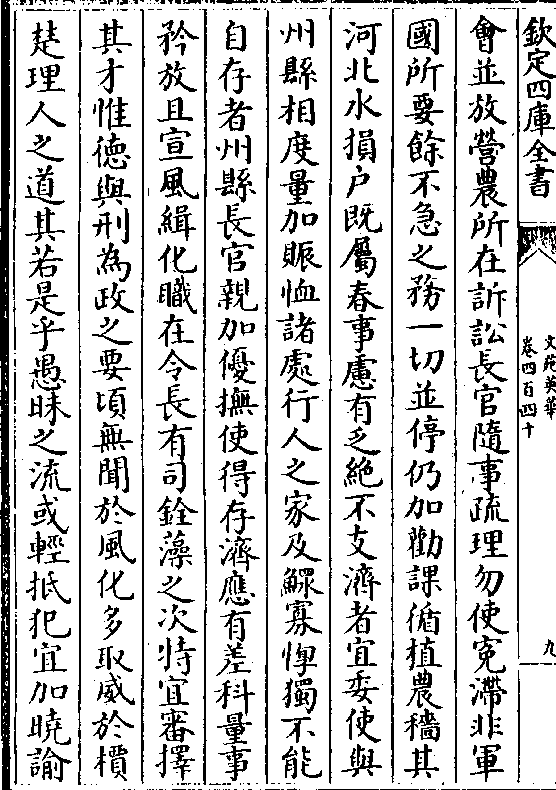 欽定四庫全書
文苑英華
卷四百四十
九
會並放營農所在訴訟長官隨事疏理勿使寃滯非軍
國所要餘不急之務一切並停仍加勸課循植農穡其
河北水損户既屬春事慮有乏絶不支濟者宜委使與
州縣相度量加賑恤諸處行人之家及鰥寡惸獨不能
自存者州縣長官親加優撫使得存濟應有差科量事
矜放且宣風緝化職在令長有司銓藻之次特宜審擇
其才惟徳與刑為政之要頃無聞於風化多取威於檟
楚理人之道其若是乎愚昧之流或輕抵犯宜加曉諭